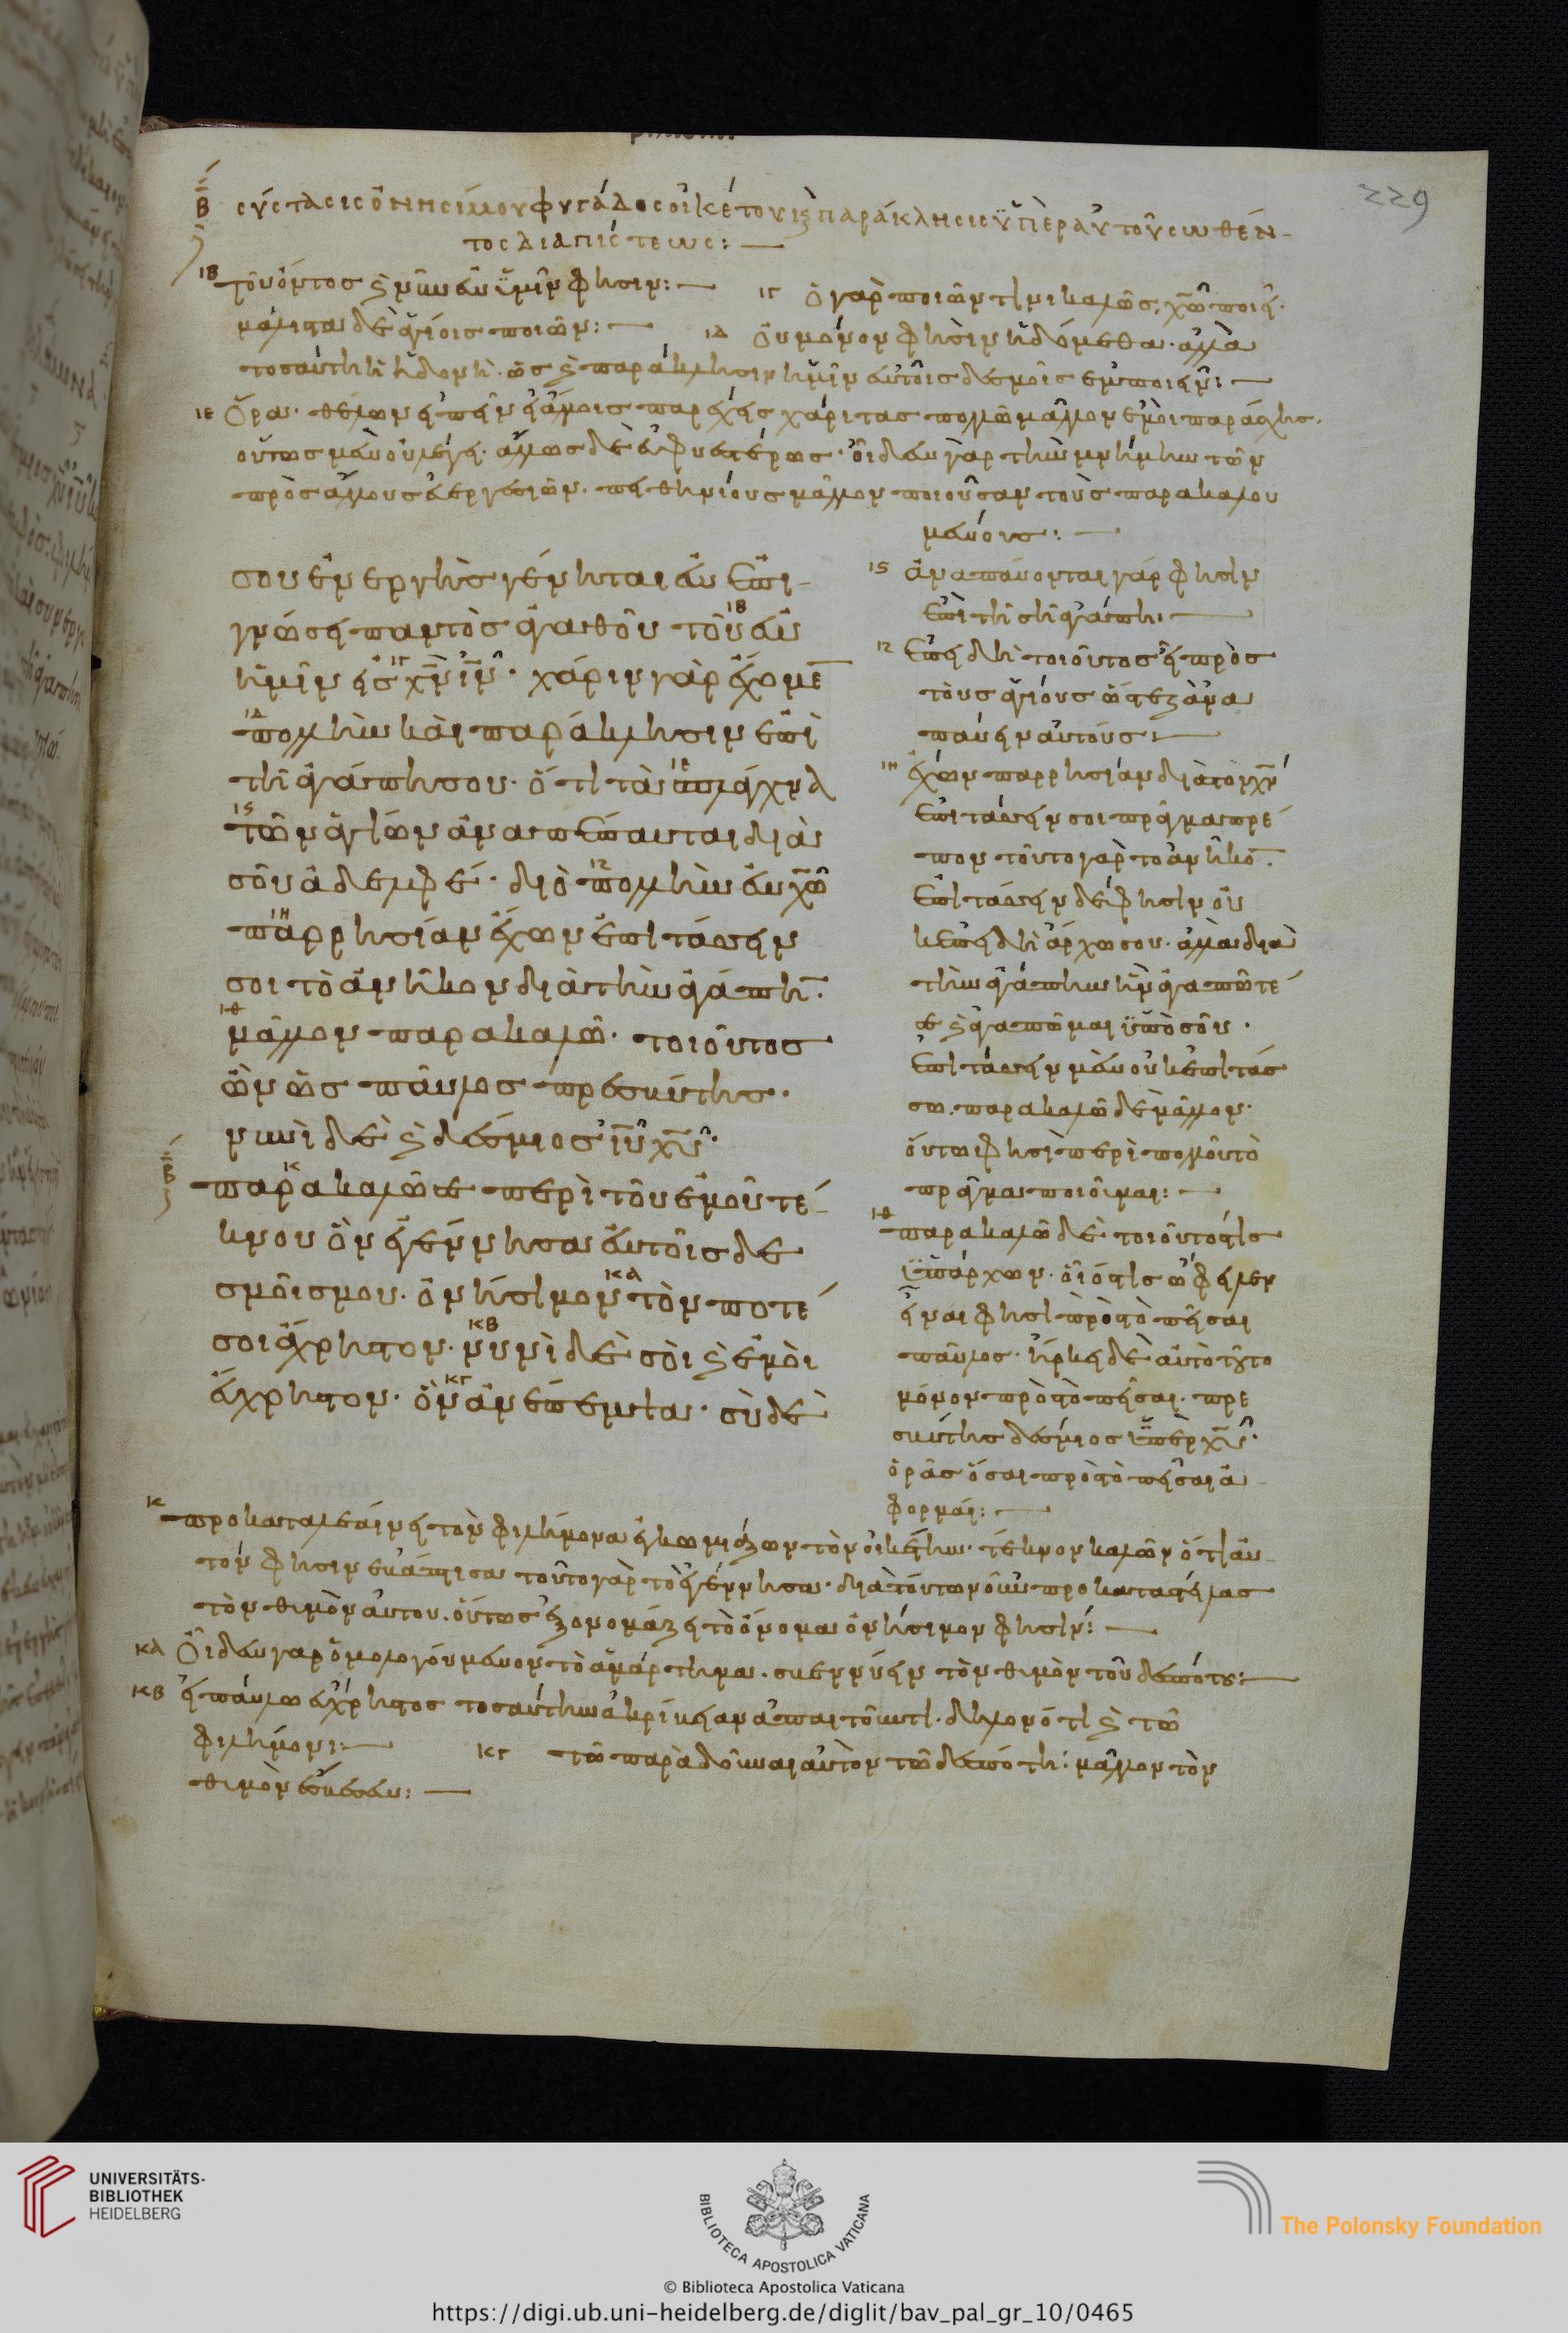 229
Β σύστασις ὀνησίμου φυγάδος οἰκέτου ϗ παράκλησις ὑπὲρ αὐτοῦ σωθέν-
τος διὰ πίστεως:
ΙΒ τοῦ ὄντος ϗ νῦν ἐν ὑμῖν φησιν: ΙΓ ὁ γὰρ ποιῶν τινι καλῶς, χ̅ω̅ ποιεῖ.
μάλιστα δὲ ἁγίοις ποιῶν: ΙΔ οὐ μόνον φησὶν ἡδόμεθα. ἀλλὰ
τοσαύτη ἡ ἡδονὴ. ὡς ϗ παράκλησιν ἡμῖν ἐν τοῖς δεσμοῖς ἐμποιεῖν:
ΙΕ Ὅρα. θέλων εἰπεῖν εἰ ἄλλοις παρέχεις χάριτας πολλῶ μᾶλλον ἐμοὶ παράσχης.
οὕτως μὲν οὐ λέγει. ἄλλως δὲ εὐφυεστέρως. οἶδεν γὰρ τὴν μνήμην τῶν
πρὸς ἄλλους εὐεργεσιῶν. πειθηνίους μᾶλλον ποιοῦσαν τοὺς παρακαλου
μένους:
σου ἐνεργὴς γένηται ἐν ἐπι-
γνώσει παντὸς ἀγαθοῦ τοῦ ἐν
ἡμῖν εἰς χ̅ν̅ ι̅ν̅. χάριν γὰρ ἔχομε̅
πολλὴν καὶ παράκλησιν ἐπὶ
τῆ ἀγάπη σου. ὅτι τὰ σπλάγχνα
τῶν ἁγίων ἀναπέπαυται διὰ
σοῦ ἀδελφέ. διὸ πολλὴν ἐν χ̅ω̅
παρρησίαν ἔχων ἐπιτάσσειν
σοι τὸ ἀνῆκον διὰ τὴν ἀγάπη̅.
μᾶλλον παρακαλῶ. τοιοῦτος
ὢν ὡς παῦλος πρεσβύτης.
νυνὶ δὲ ϗ δέσμιος ι̅υ̅ χ̅υ̅.
Β παρακαλῶ σε περὶ τοῦ ἐμοῦ τέ-
κνου ὃν ἐγέννησα ἐν τοῖς δε
σμοῖς μου. ὀνήσιμον τὸν ποτέ
σοι ἄχρηστον. νυνὶ δὲ σοὶ ϗ ἐμοὶ
εὔχρηστον. ὃν ἀνέπεμψα. σὺ δὲ
ΙϚ ἀναπαύονται γάρ φησιν
ἐπὶ τῆ σῆ ἀγάπη.
ΙΖ Ἐπειδὴ τοιοῦτος εἶ πρὸς
τοὺς ἁγίους ὥστε ἀνα
παύειν αὐτούς:
ΙΗ ἔχων παρρησίαν διὰ τὸν χ̅ν̅
ἐπιτάσσειν σοι πρᾶγμα πρέ
πον τοῦτο γὰρ τὸ ἀνῆκο̅.
ἐπιτάσσειν δέ φησιν οὐ
κ ἐπειδὴ ἄρχω σου. ἀλλὰ διὰ
τὴν ἀγάπην ἣν ἀγαπῶ τέ
σε ϗ ἀγαπῶμαι ὑπὸ σοῦ.
ἐπιτάσσειν μὲν οὐκ ἐπιτάσ
σω. παρακαλῶ δὲ μᾶλλον.
οὕτω φησὶ περὶ πολλοῦ τὸ
πρᾶγμα ποιοῦμαι:
ΙΘ παρακαλῶ δὲ τοιοῦτός τις
ὑπάρχων. οἷός τις ὤφειλεν
εἶναι φησὶ πρὸς τὸ πεῖσαι
παῦλος. ἤρκει δὲ αὐτὸ τοῦτο
μόνον πρὸς τὸ πεῖσαι. πρε
σβύτης δέσμιος ὑπὲρ χ̅υ̅.
ὁρᾶς ὅσαι πρὸς τὸ πεῖσαι ἀ
φορμαί:
Κ προκαταλεαίνει τὸν φιλήμονα ἐγκωμιάζων τὸν οἰκέτην. τέκνον καλῶν ὅτι αὐ-
τόν φησιν ἐβάπτισα τοῦτο γὰρ τὸ ἐγέννησα. διὰ τούτων οὖν προκαταστείλας
τὸν θυμὸν αὐτοῦ. οὕτως ἐξονομάζει τὸ ὄνομα ὀνήσιμον φησίν:
ΚΑ Οἶδεν γὰρ ὁμολογούμενον τὸ ἁμάρτημα. σβεννύειν τὸν θυμὸν τοῦ δεσπότου:
ΚΒ εἰ παύλω εὔχρηστος τοσαύτην ἀκρίβειαν ἀπαιτοῦντι. δῆλον ὅτι ϗ τῶ
φιλήμονι: ΚΓ τῶ παραδοῦναι αὐτὸν τῶ δεσπότη: μᾶλλον τὸν
θυμὸν ἔσβεσεν:
UNIVERSITÄTS-
BIBLIOTHEK
HEIDELBERG
BIBLIOTECA APOSTOLICA VATICANA
The Polonsky Foundation
© Biblioteca Apostolica Vaticana
https://digi.ub.uni-heidelberg.de/diglit/bav_pal_gr_10/0465